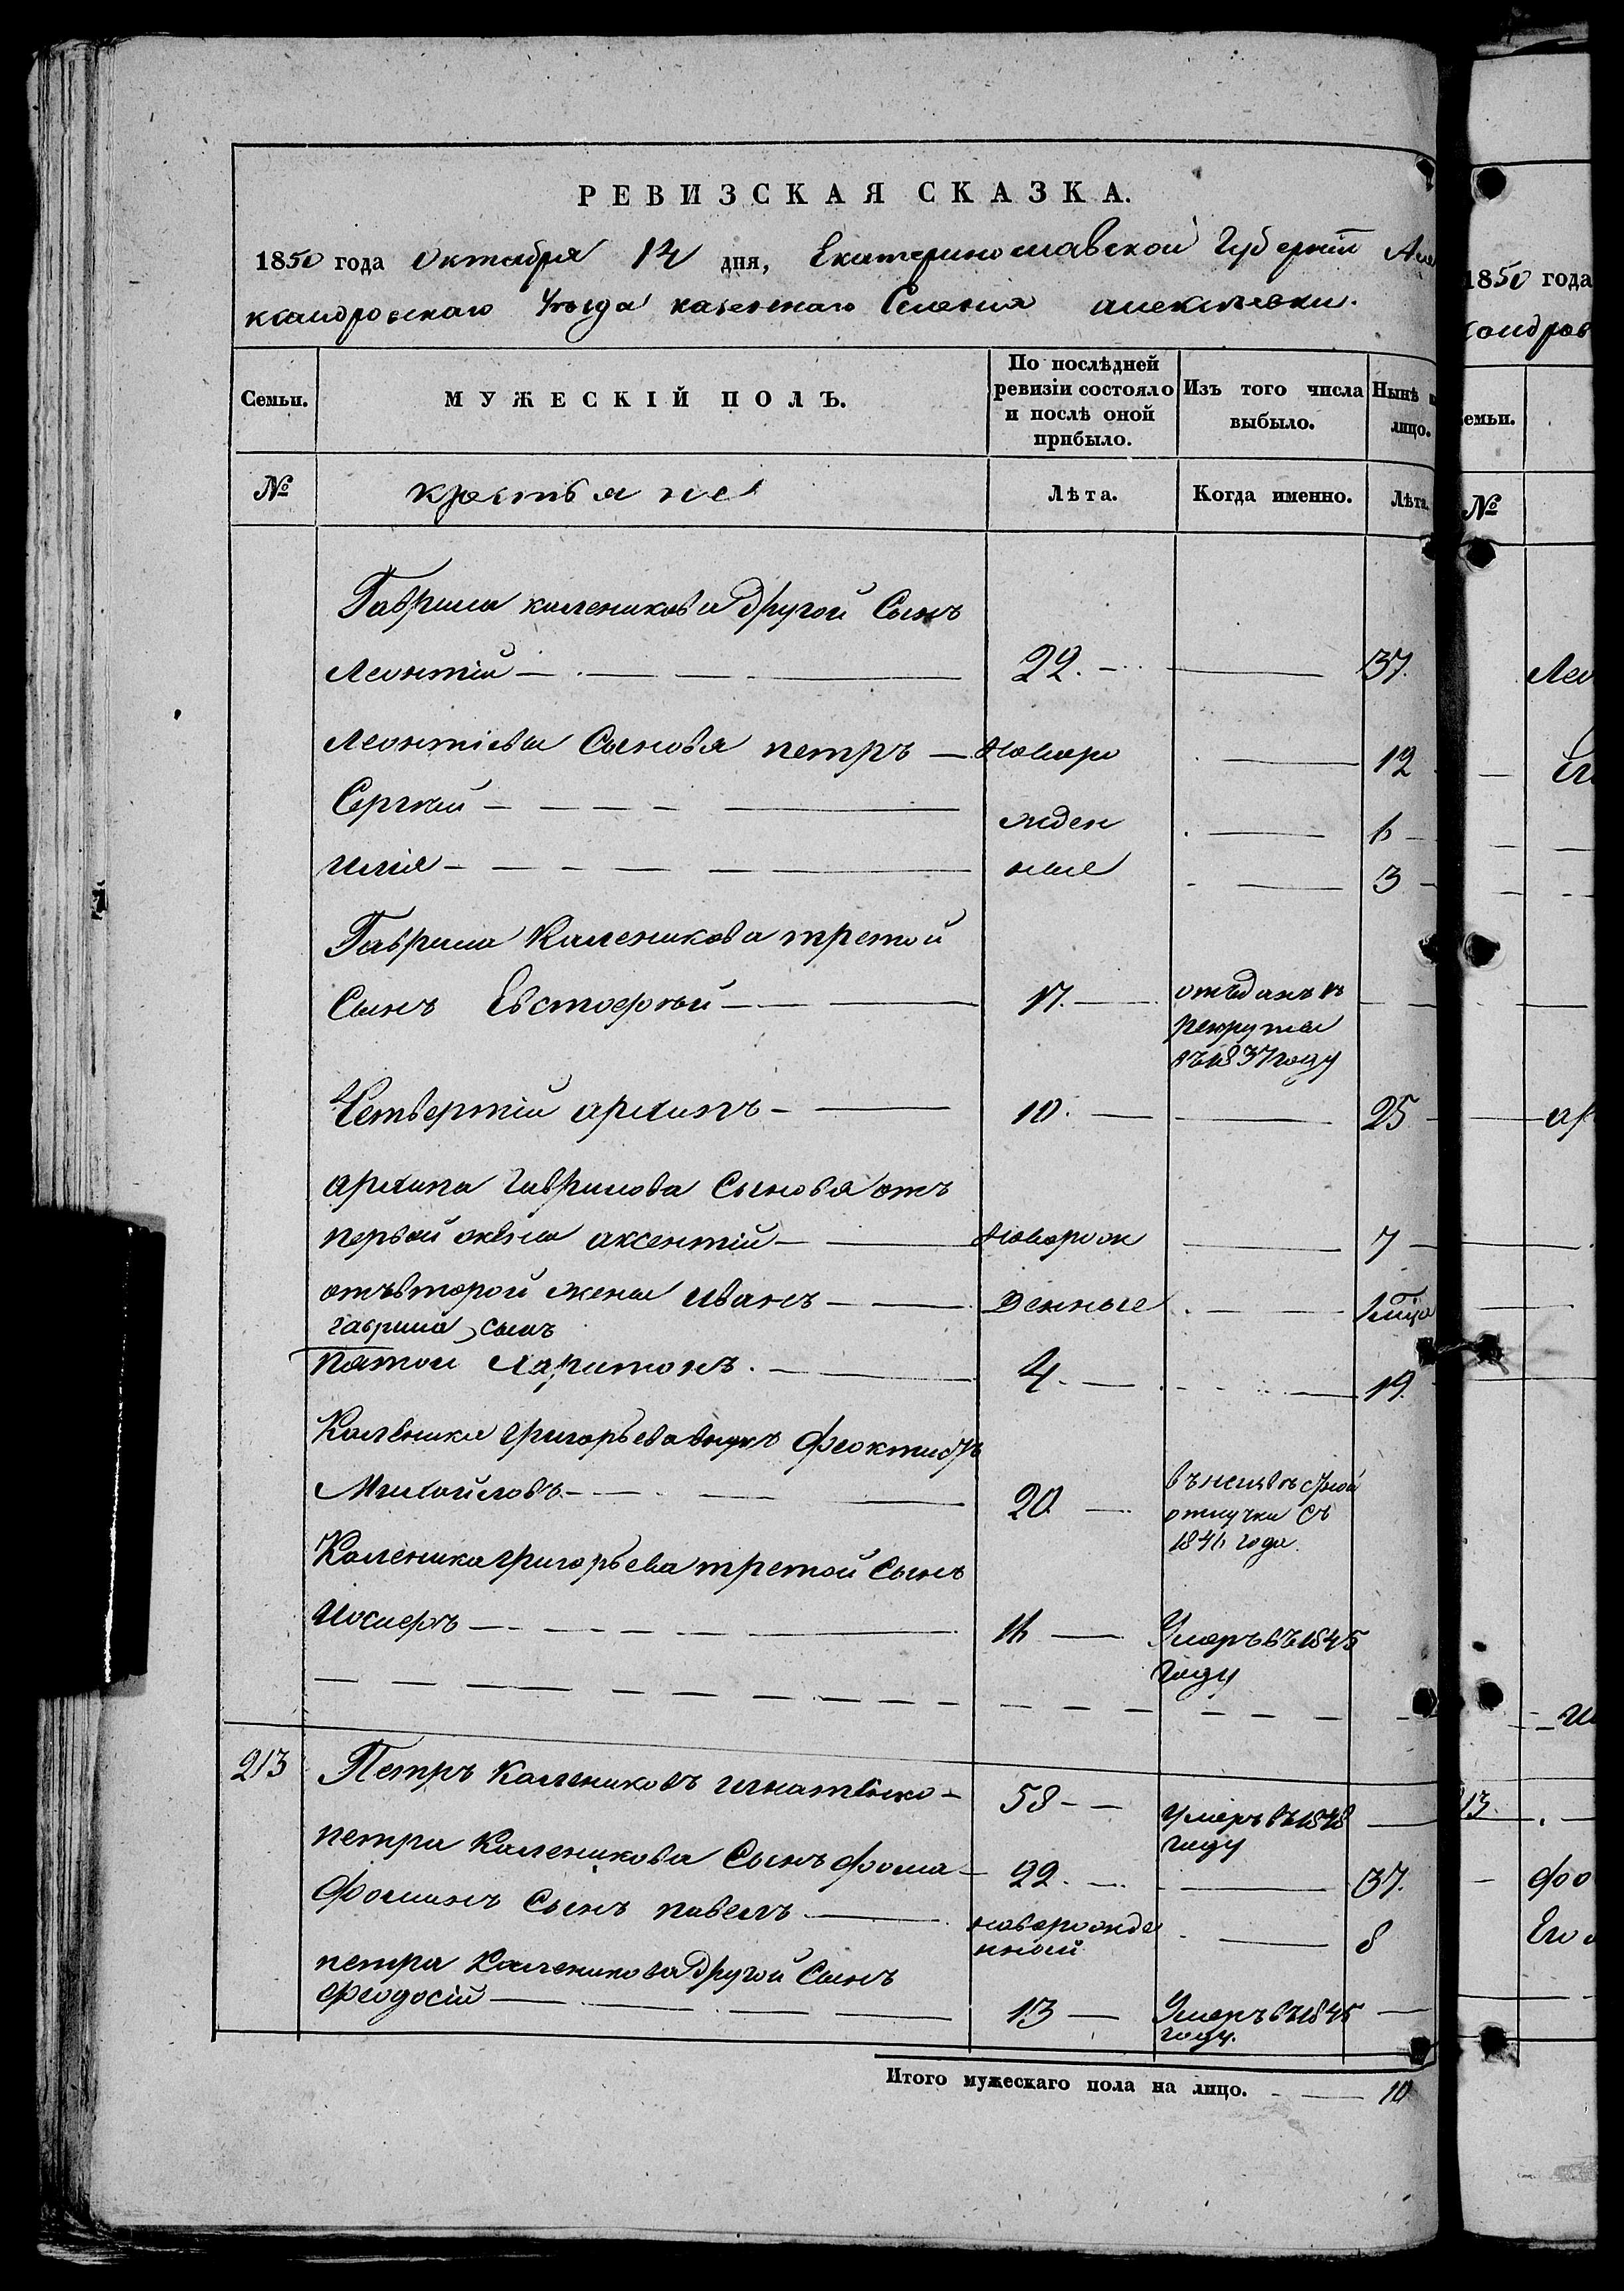 РЕВИЗСКАЯ СКАЗКА.
1850 года Октября 14 дня, Екатеринославской Губернiи Але
ксандровскаго Уѣзда казеннаго Селенiя алексѣевки.
Семьи. МУЖЕСКIЙ ПОЛЪ. По послѣдней ревизiи состояло и послѣ оной прибыло. Изъ того числа выбыло. Нынѣ лицо.
№ крестьяне Лѣта. Когда именно. Лѣта.
Гаврила каленикова другой Сынъ
Леонтiй — 22. — 37.
Леонтiева Сыновя петръ — Новоро — 12
Сергѣй — жден — 6
илiя — ные — 3
Гаврила Каленикова третой
Сынъ Евстафѣй — 17. — отъданъ въ
рекруты
въ 1837 году
Четвертiй архипъ — 10. — 25
архипа гаврилова Сыновя отъ
первой жены аксентiй — Новорож — 7
отъ второй жены иванъ — денные — 1
гаврила сынъ
пятой харитонъ. — 4. — 19.
Каленика григорьева внукъ феоктистъ
Михайловъ — 20 — въ неизвѣстной
отлучки съ
1841 года.
Каленика григорьева третой Сынъ
16 — Умеръ въ 1845
году
213 Петръ Калениковъ игнатенко — 58 — умеръ въ 1848 —
году
петра Каленикова Сынъ фома — 22. — 37.
фоминъ Сынъ павелъ — новорожде — 8
нной
петра Каленикова другой Сынъ
феодосiй — 13 — Умеръ въ 1845 —
году.
Итого мужескаго пола на лицо. — 10
1850 года
ксандров
Семьи.
№
Лео
ар
13.
фо
Его